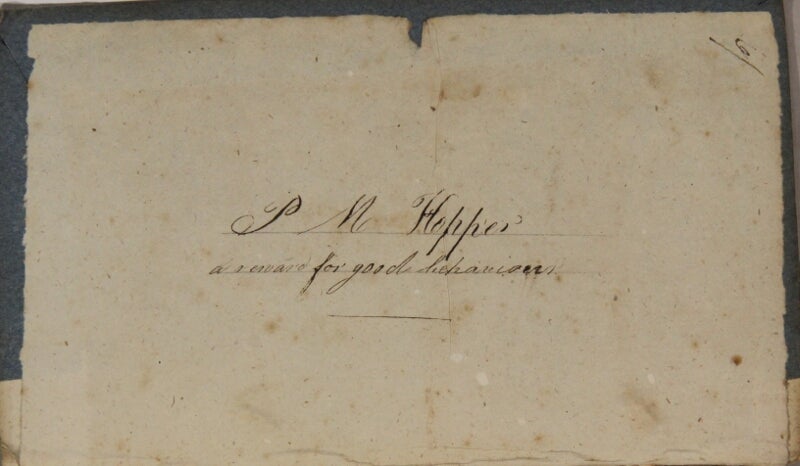 6/
P M Hopper
a reward for good behaviour